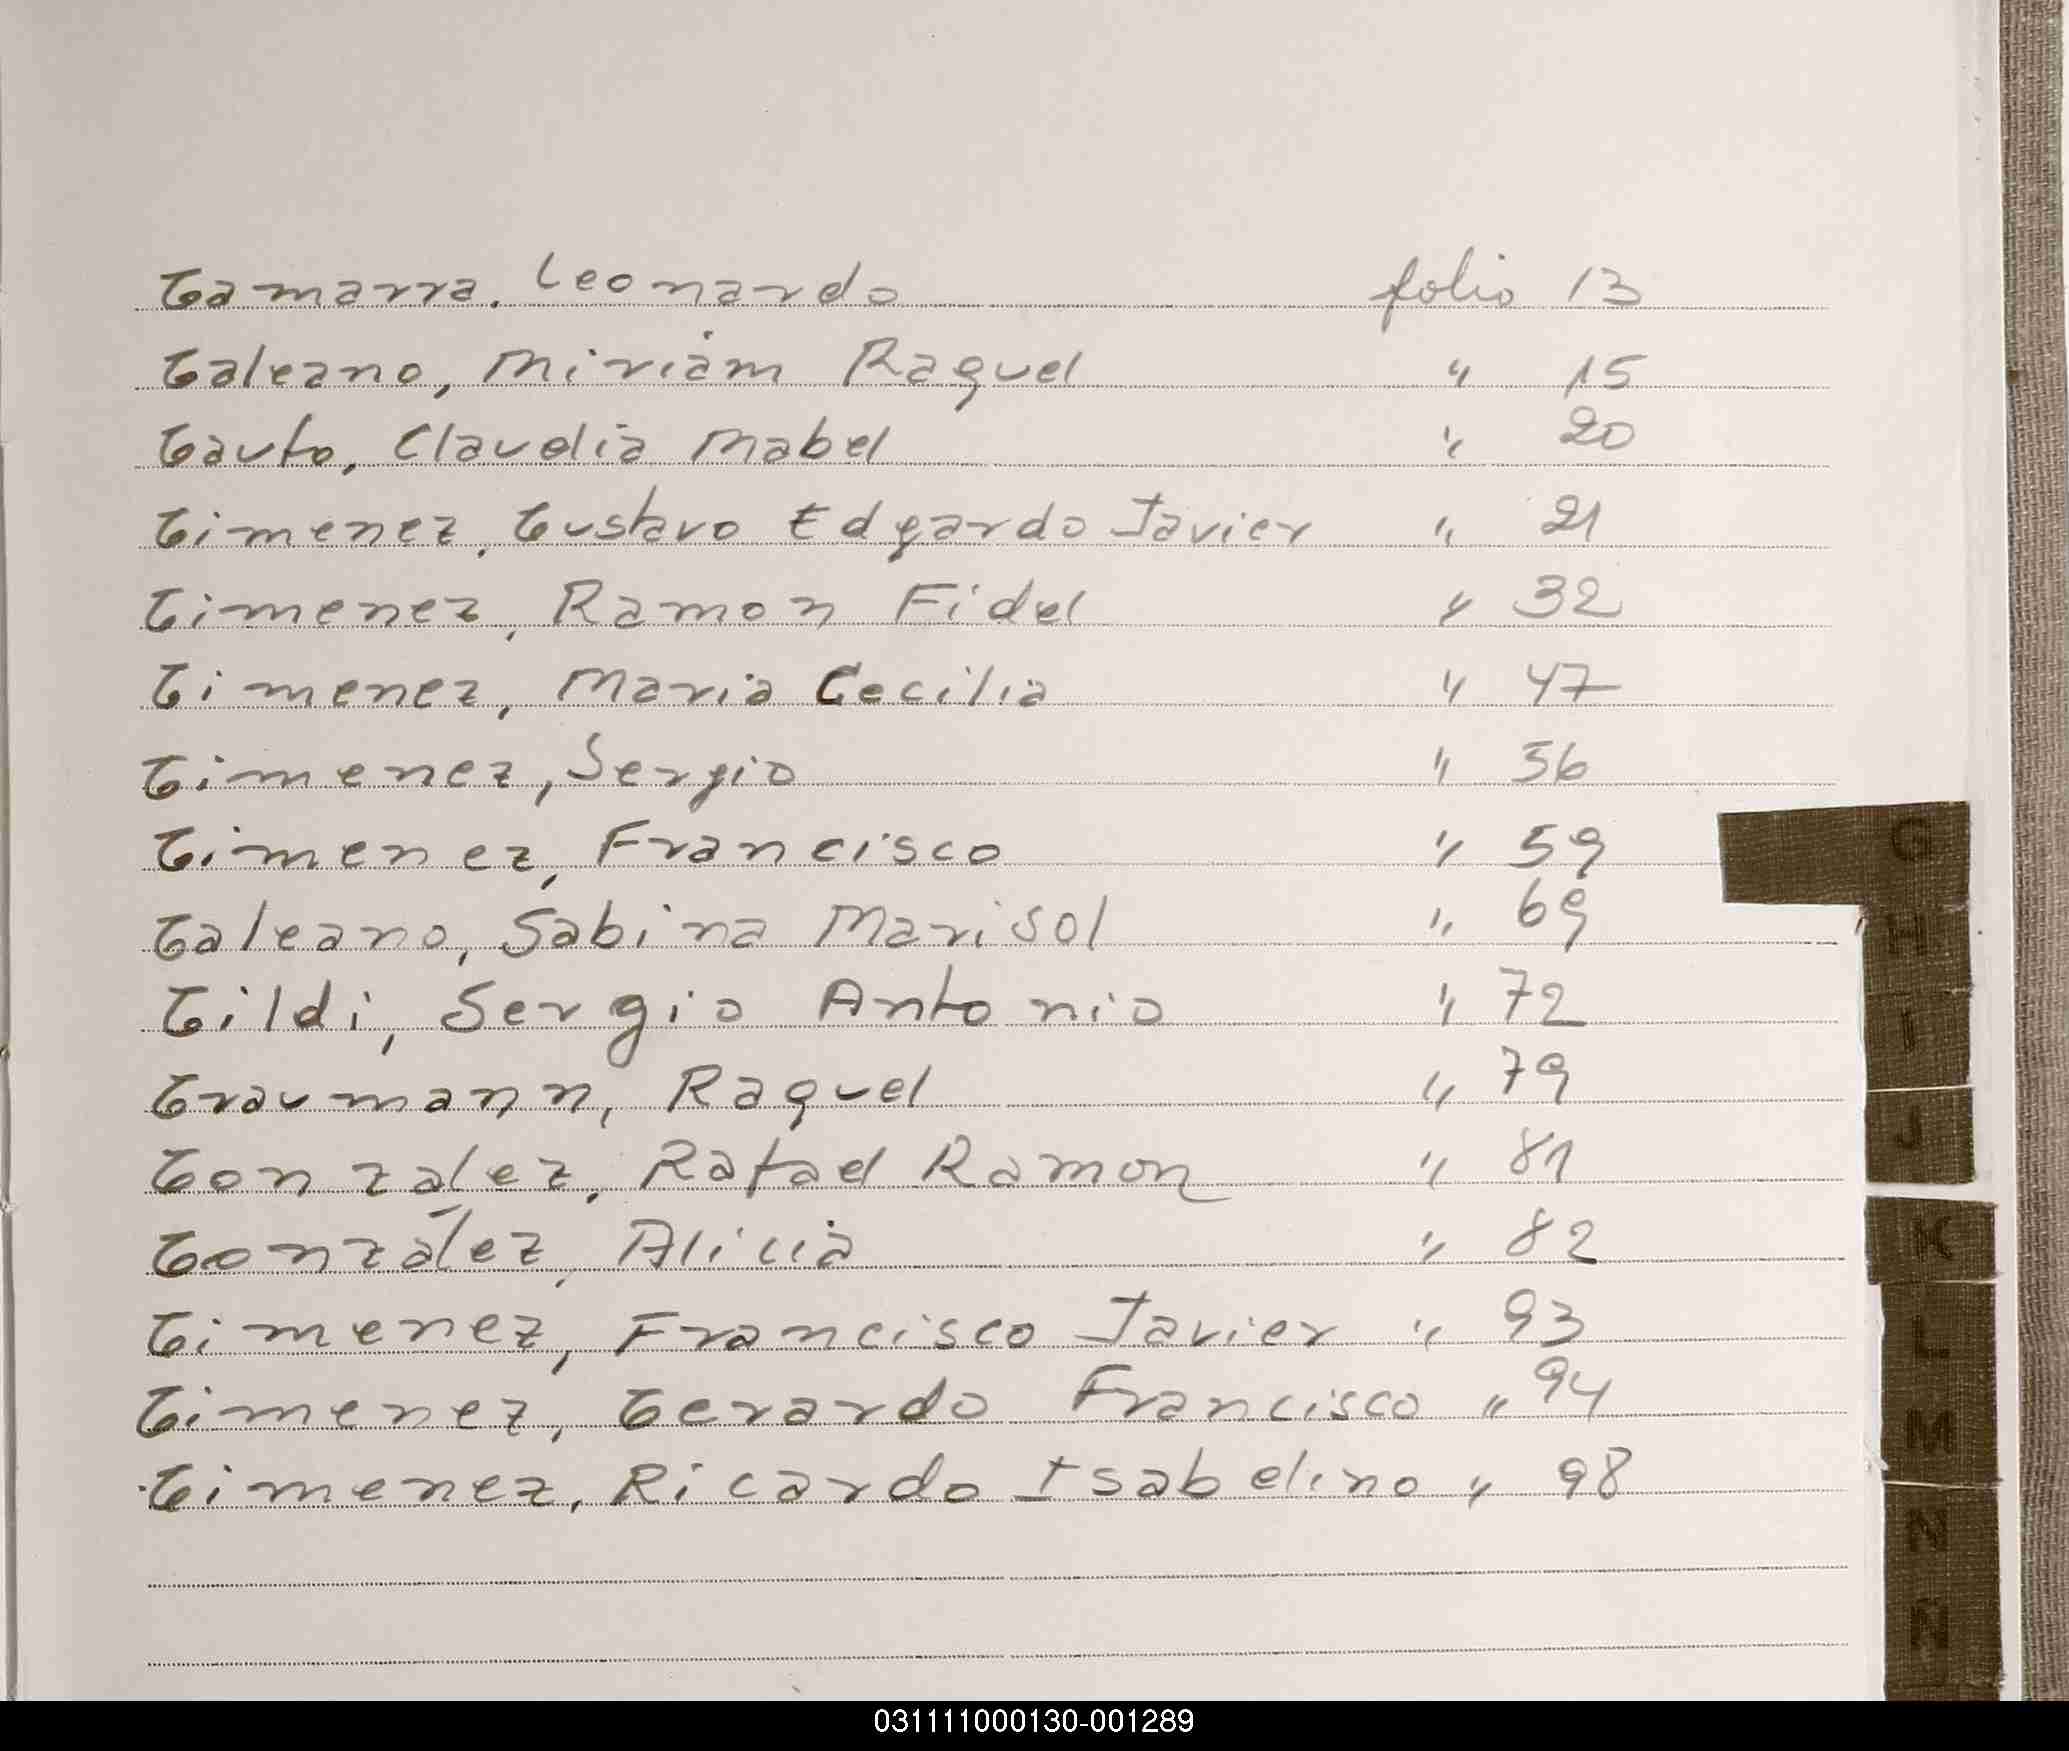 Gamarra, Leonardo folio 13
Galeano, Miriam Raquel " 15
Gauto, Claudia Mabel " 20
Gimenez, Gustavo Edgardo Javier " 21
Gimenez, Ramon Fidel " 32
Gimenez, Maria Cecilia " 47
Gimenez, Sergio " 56
Gimenez, Francisco " 59
Galeano, Sabina Marisol " 69
Gildi, Sergio Antonio " 72
Graumann, Raquel " 79
Gonzalez, Rafael Ramon " 81
González, Alicia " 82
Gimenez, Francisco Javier " 93
Gimenez, Gerardo Francisco " 94
Gimenez, Ricardo Isabelino " 98
G
H
I
J
K
L
M
N
Ñ
031111000130-001289